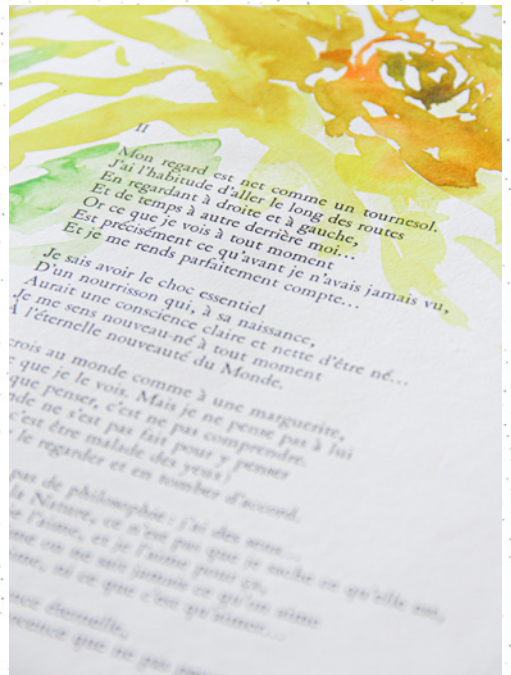 II
Mon regard est net comme un tournesol.
J'ai l'habitude d'aller le long des routes
En regardant à droite et à gauche,
Et de temps à autre derrière moi...
Or ce que je vois à tout moment
Est précisément ce qu'avant je n'avais jamais vu,
Et je me rends parfaitement compte...
Je sais avoir le choc essentiel
D'un nourrisson qui, à sa naissance,
Aurait une conscience claire et nette d'être né...
Je me sens nouveau-né à tout moment
À l'éternelle nouveauté du Monde.
crois au monde comme à une marguerite,
que je le vois. Mais je ne pense pas à lui
que penser, c'est ne pas comprendre.
ne s'est pas fait pour y penser
c'est être malade des yeux)
le regarder et en tomber d'accord.
pas de philosophie : j'ai des sens...
la Nature, ce n'est pas que je sache ce qu'elle est,
l'aime, et je l'aime pour ça,
on ne sait jamais ce qu'on aime
ni ce que c'est qu'aimer...
éternelle,
que ne pas